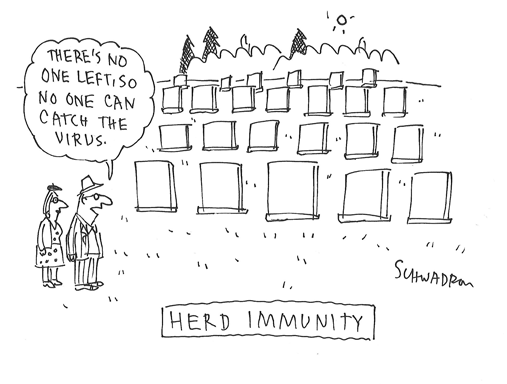 THERE'S NO
ONE LEFT, SO
NO ONE CAN
CATCH THE
VIRUS.
SCHWADRON
HERD IMMUNITY